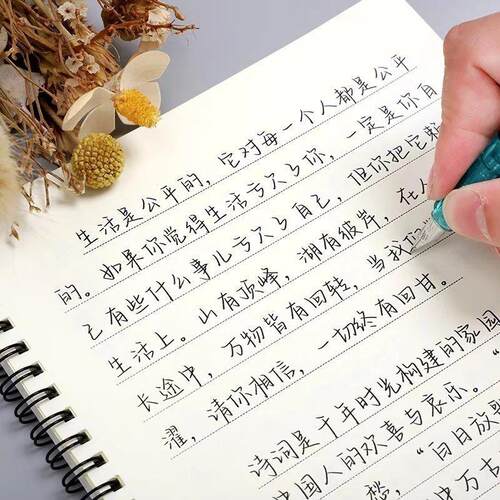 生活是公平的，它对每一个人都是公平
的。如果你觉得生活亏欠了你，一定是你自
己有些什么事儿亏欠了自己，但你把它
生活上。山有顶峰，湖有彼岸，在人
长途中，万物皆有回转，当我们
濯，请你相信，一切终有回甘。
诗词是千年时光构建的家园
国人的欢喜与哀乐。“
，“白日放歌
万古